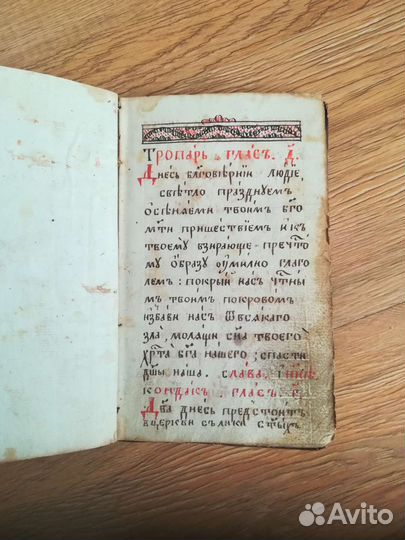 Тропа́рь , гла́съ . д҃ .
Дне́сь благовѣ́рнїи лю́дїе ,
свѣ́тло пра́зднуемъ
ѡсѣня́еми твои́мъ бг҃о
мт҃и прише́ствїемъ и҆ къ
твоему̀ взира́юще пречⷭ҇то
му ѡ҆́бразу ѹ҆ми́лно глаго́
лемъ : покры́й на́съ чⷭ҇тны́
мъ твои́мъ покро́вомъ
и҆зба́ви на́съ ѿ вся́каго
зла̀ , моля́щи сн҃а твоего̀
хрⷭ҇та̀ бг҃а на́шего ; спастѝ
дш҃ы на́ша . сла́ва , и҆ ны́нѣ
конда́къ . гла́съ . г҃ .
Дв҃а дне́сь предстои́тъ
в цр҃кви съ ли́ки ст҃ы́хъ
Avito